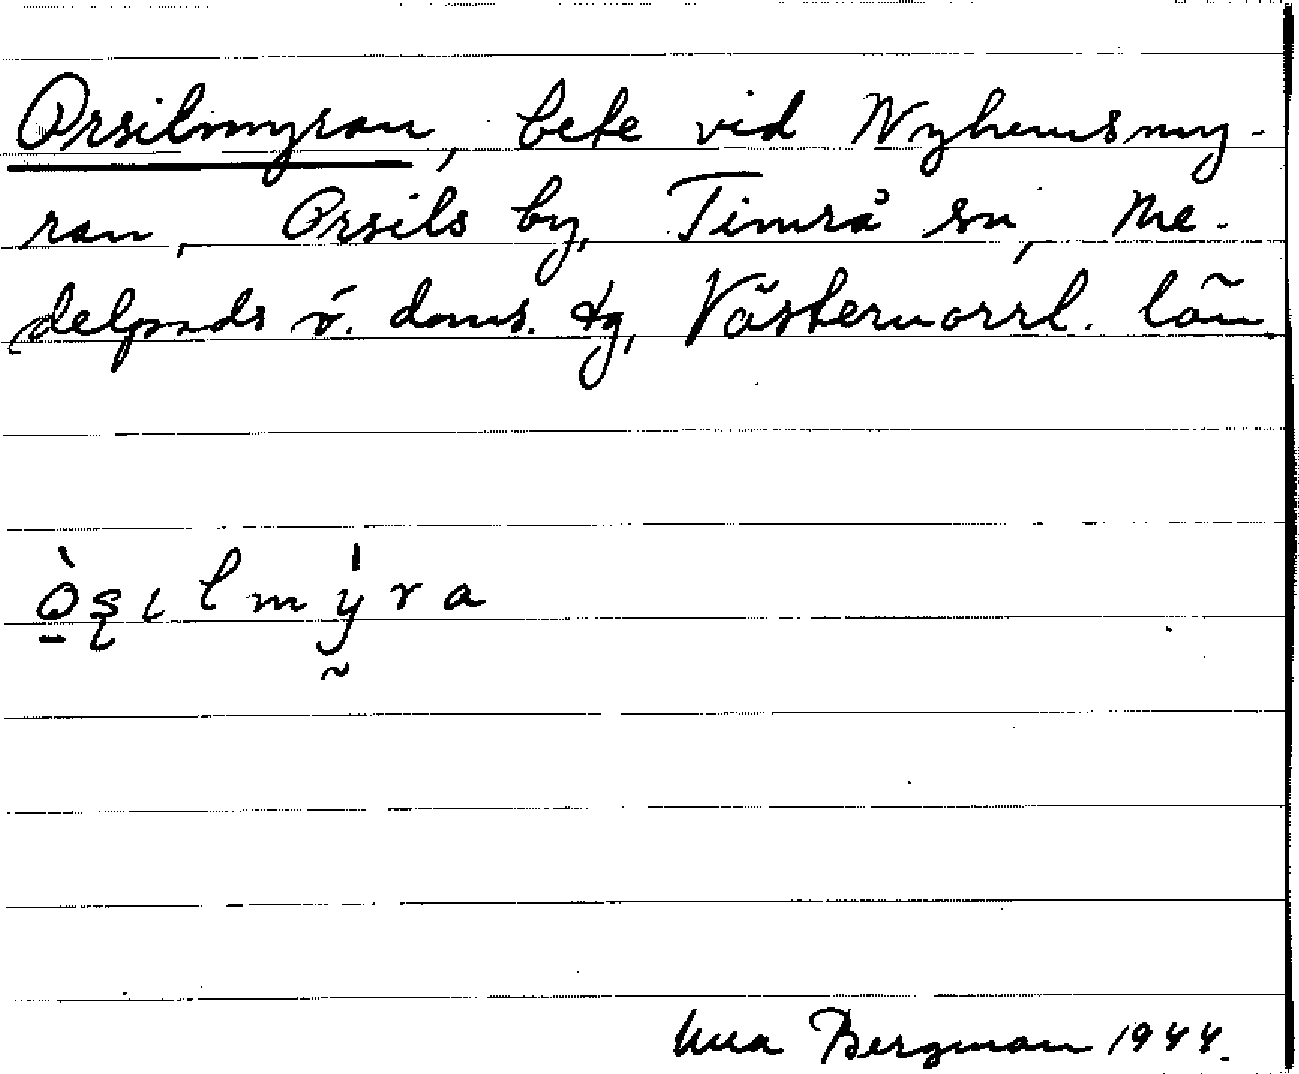 Orsilmyran, bete vid Nyhemsmy-
ran, Orsils by, Timrå sn, Me-
delpads v. doms. tg, Västernorrl. län.
ò̱ʂɩlmý̰ra
Bergman 1944.